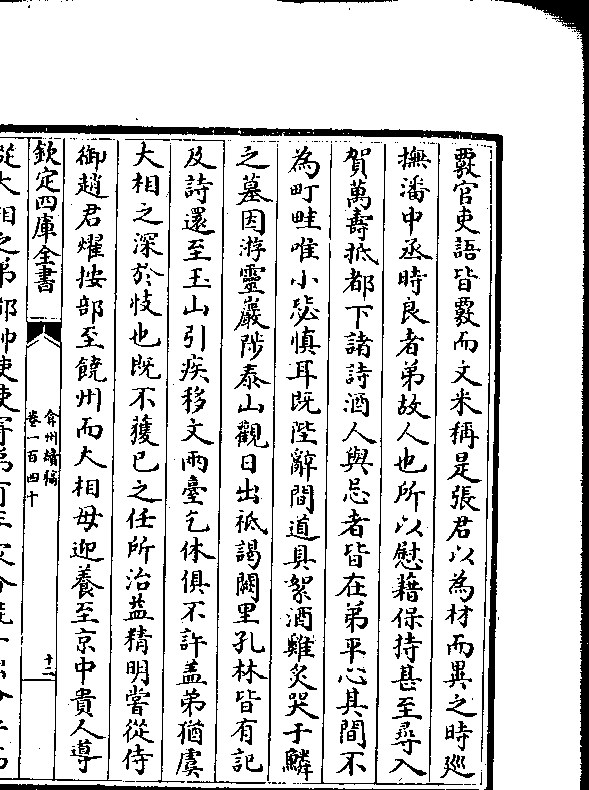 覈官吏語皆覈而文米稱是張君以為材而異之時廵
撫潘中丞時良者弟故人也所以慰藉保持甚至尋入
賀萬壽抵都下諸詩酒人與忌者皆在弟平心其間不
為町畦唯小毖慎耳既陛辭間道具絮酒雞炙哭于鱗
之墓因游靈巖陟泰山觀日出祗謁闕里孔林皆有記
及詩還至玉山引疾移文兩臺乞休俱不許盖弟猶虞
大相之深於忮也既不獲已之任所治益精明嘗從侍
御趙君燿按部至饒州而大相母迎養至京中貴人導
欽定四庫全書
弇州續稿
卷一百四十
十二
從大相之弟